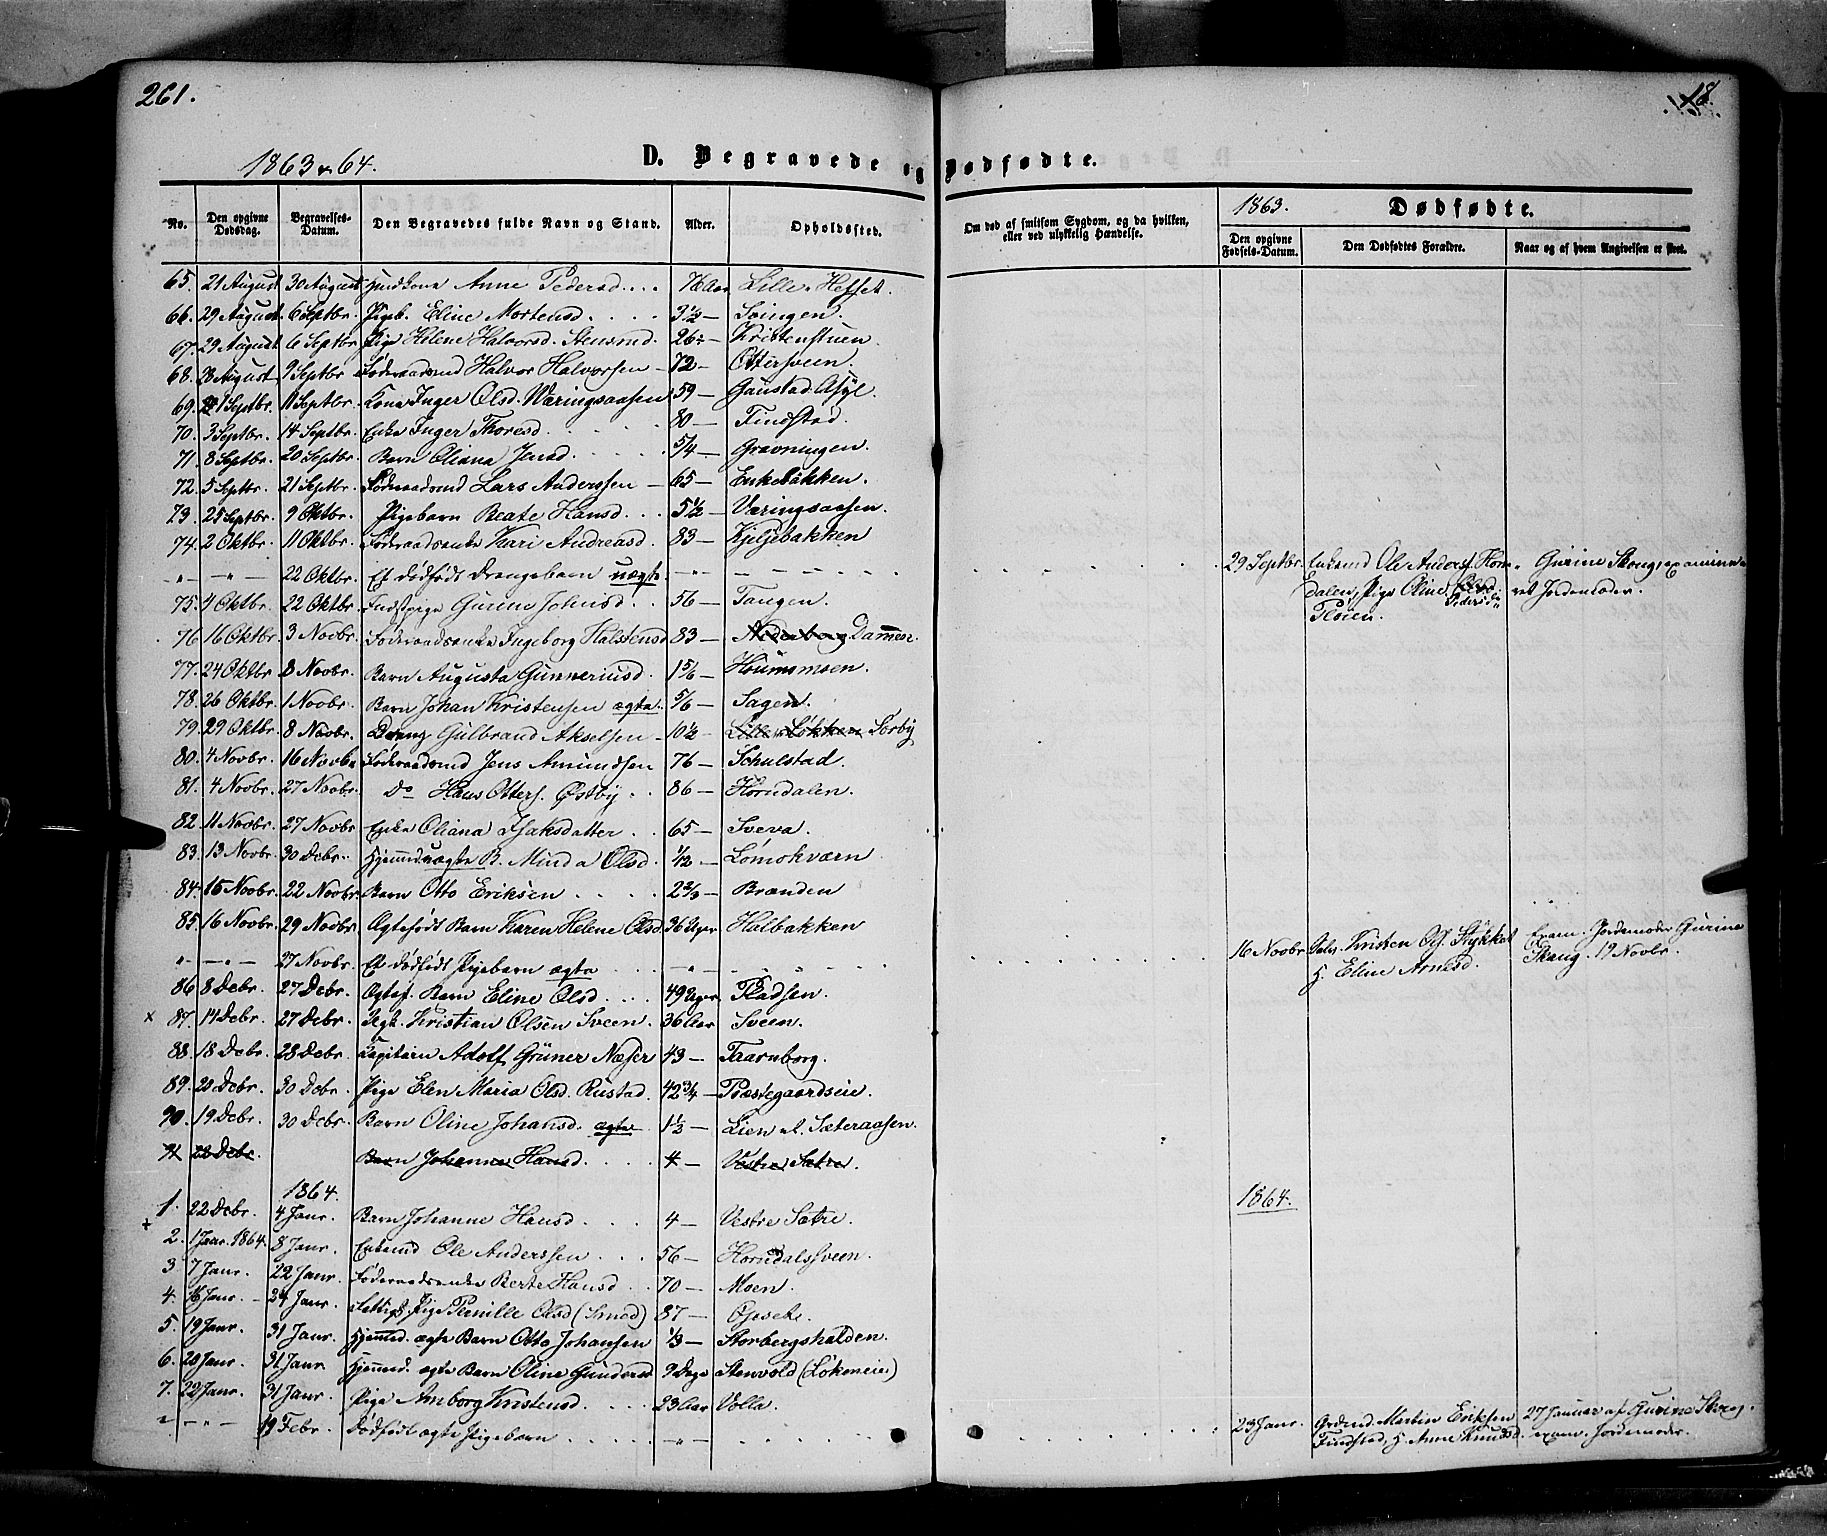 261.
18.
1863 & 64.
D. Begravede og Dødfødte.
No. Den opgivne Dødsdag. Begravelses-Datum. Den Begravedes fulde Navn og Stand. Alder. Opholdssted. Om død af smitsom Sygdom, og da hvilken, eller ved ulykkelig Hændelse. 1863. Dødfødte.
Den opgivne Fødsels-Datum. Den Dødfødtes Forældre. Naar og af hvem Angivelsen er skeet.
65. 21 August 30 August Huuskone Anne Pedersd.... 76 Aar Lille-Hesset.
66. 29 August. 6 Septbr. Pigeb. Eline Mortensd.... 3½ — Svingen.
67. 29 August 6 Septbr Pige Helene Halvorsd. Stensrud. 26 — Kristenstuen.
68. 28 August 9 Septbr Føderaadsmd Halvor Halvorsen — 72 — Ottersveen.
69. 1 Septbr. 11 Septbr. Kone Inger Olsd. Wæringsaasen 59 — Gaustad Asyl.
70. 3 Septbr. 14 Septbr. Enke Inger Thoresd.... 80 — Findstad.
71. 8 Septbr. 20 Septbr. Barn Oliana Jensd.... 5/4 — Gravningen.
72. 5 Septbr. 21 Septbr. Føderaadsmd Lars Anderssen — 65 — Enkebakken.
73. 25 Septbr. 9 Oktbr. Pigebarn Beate Hansd... 5½ — Væringsaasen.
74. 2 Oktbr. 11 Oktbr. Føderaadsenke Kari Andreasd. 83 — Kjiljebakken
" — " — 22 Oktbr. Et dødfødt Drengebarn uægte. — " —
29 Septbr. Enkemd Ole Anders. Horn- Gurine Skoug, examine-
dalen, Pige Oline Pedersd. ret Jordemoder.
Pløien.
75. 4 Oktbr. 22 Oktbr. Indstpige Gurine Johnsd... 56 — Tangen.
76. 16 Oktbr. 3 Novbr. Føderaadsenke Ingeborg Halstensd 83 — Dammen.
77. 24 Oktbr 8 Novbr. Barn Augusta Gunneriusd. 1 5/6 — Houmsmoen.
78. 26 Oktbr. 1 Novbr. Barn Johan Kristensen ægte. 5/6 — Sagen.
79. 29 Oktbr. 8 Novbr. Dreng Gulbrand Akselsen — 10½ — Lille Løkken Sørby
80. 4 Novbr. 16 Novbr Føderaadsmd Jens Amundsen 76 — Schulstad.
81. 4 Novbr. 27 Novbr. Do Hans Otters. Østby.. 86 — Horndalen.
82. 11 Novbr. 27 Novbr Enke Oliana Isaksdatter.. 65 — Sveva.
83. 13 Novbr. 30 Debr. Hjemmd. uægte B. Minda Olsd. 1/12 — Lømokværn
84. 15 Novbr. 22 Novbr. Barn Otto Eriksen.... 2 2/3 — Brænden
85. 16 Novbr. 29 Novbr. Ægtefødt Barn Karen Helene Olsd. 36 Uger Halbakken
" — " — 27 Novbr. Et dødfødt Pigebarn ægte — " —
16 Novbr Kristen Ol. Stykket Exam. Jordemoder Gurine
H Eline Arnesd. Skoug. 19 Novbr.
86 8 Debr. 27 Debr. Ægtef. Barn Eline Olsd.... 49 Uger Pladsen.
x 87. 14 Debr. 27 Debr. Ungk. Kristian Olsen Sveen. 36 Aar Sveen.
88. 18 Debr. 28 Debr. Kapitain Adolf Grüner Næser 43 — Taarnborg.
89. 20 Debr. 30 Debr. Pige Elen Maria Olsd. Rustad. 42 3/4 — Præstegaardseie.
90. 19 Debr. 30 Debr. Barn Oline Johansd. ægte 1½ — Lien u. Sæteraasen.
91 22 Debr. Barn Johanne Hansd.... 4 — Vestre Sætre.
1864.
1864.
1. 22 Debr. 4 Janr. Barn Johanne Hansd.... 4 — Vestre Sætre.
+ 2. 1 Janr. 1864. 8 Janr. Enkemd Ole Anderssen... 56 — Horndalssveen.
3 7 Janr. 22 Janr. Føderaadsenke Berte Hansd.. 70 — Moen.
4. 16 Janr. — 24 Janr. Fattigf. Pige Pernille Olsd (Smed) 87 — Opset.
5. 19 Janr. 31 Janr. Hjemmed. ægte Barn Otto Johansen 1/3 — Storbergshalden.
6. 20 Janr. 31 Janr Hjemmed. ægte Barn Oline Gundersd 9 Dage Stenvold (Løkeneie)
7. 22 Janr. 31 Janr. Pige Amborg Kristensd. 23 Aar Volla.
" — " — 19 Febr. Dødfødt ægte Pigebarn.... — " —
23 Janr. Grdmd. Martin Eriksen 27 Januar af Gurine Skoug,
Findstad, H Anne Knudsd. exam. Jordemoder.